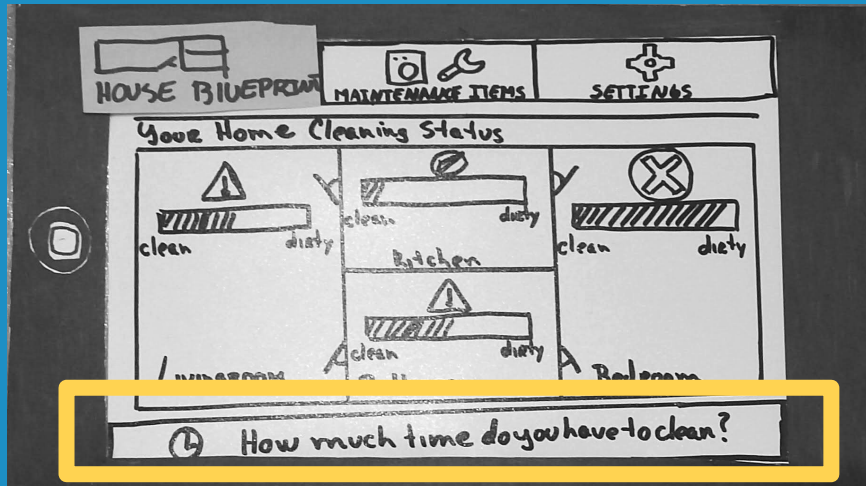 HOUSE BLUEPRINT
MAINTENANCE ITEMS
SETTINGS
Your Home Cleaning Status
clean dirty
clean
Kitchen
clean dirty
clean dirty
Livingroom
Bedroom
How much time do you have to clean?